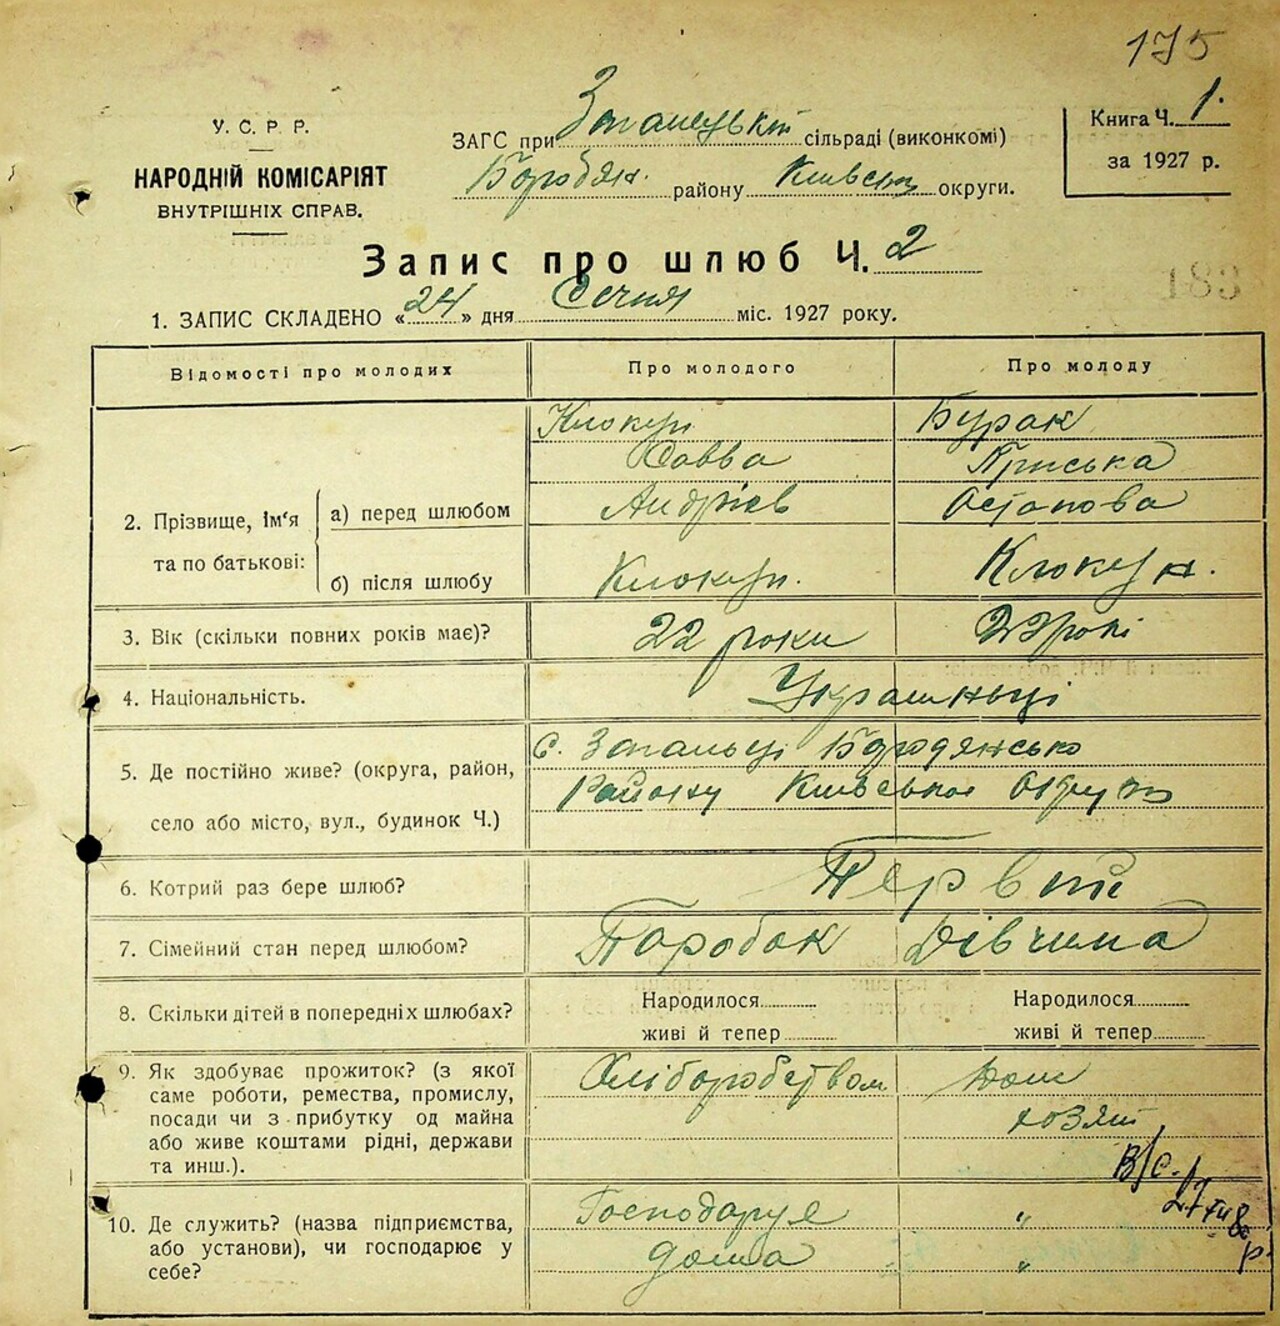 175
У. С. Р. Р.
НАРОДНІЙ КОМІСАРІЯТ
ВНУТРІШНІХ СПРАВ.
ЗАГС при Загалецькій сільраді (виконкомі)
Бородян. району Київськ округи.
Книга Ч. 1.
за 1927 р.
Запис про шлюб Ч. 2
183
1. ЗАПИС СКЛАДЕНО « 24 » дня Січня міс. 1927 року.
Відомості про молодих Про молодого Про молоду
2. Прізвище, ім'я та по батькові:
а) перед шлюбом
Клокун Бурак
Савва Пріська
Андрієв Остапова
б) після шлюбу Клокун. Клокун.
3. Вік (скільки повних років має)? 22 роки 22 рокі
4. Національність. Україньці
5. Де постійно живе? (округа, район, село або місто, вул., будинок Ч.)
с. Загальці Бородянсько
Району Київськоі Округи
6. Котрий раз бере шлюб? Первий
7. Сімейний стан перед шлюбом? Паробок Дівчина
8. Скільки дітей в попередніх шлюбах? Народилося Народилося
живі й тепер живі й тепер
9. Як здобуває прожиток? (з якої
саме роботи, ремества, промислу,
посади чи з прибутку од майна
або живе коштами рідні, держави
та инш.).
Хліборобством Дом
хозяй
В/С.
27
р.
10. Де служить? (назва підприємства,
або установи), чи господарює у
себе?
Господарує "
дома "